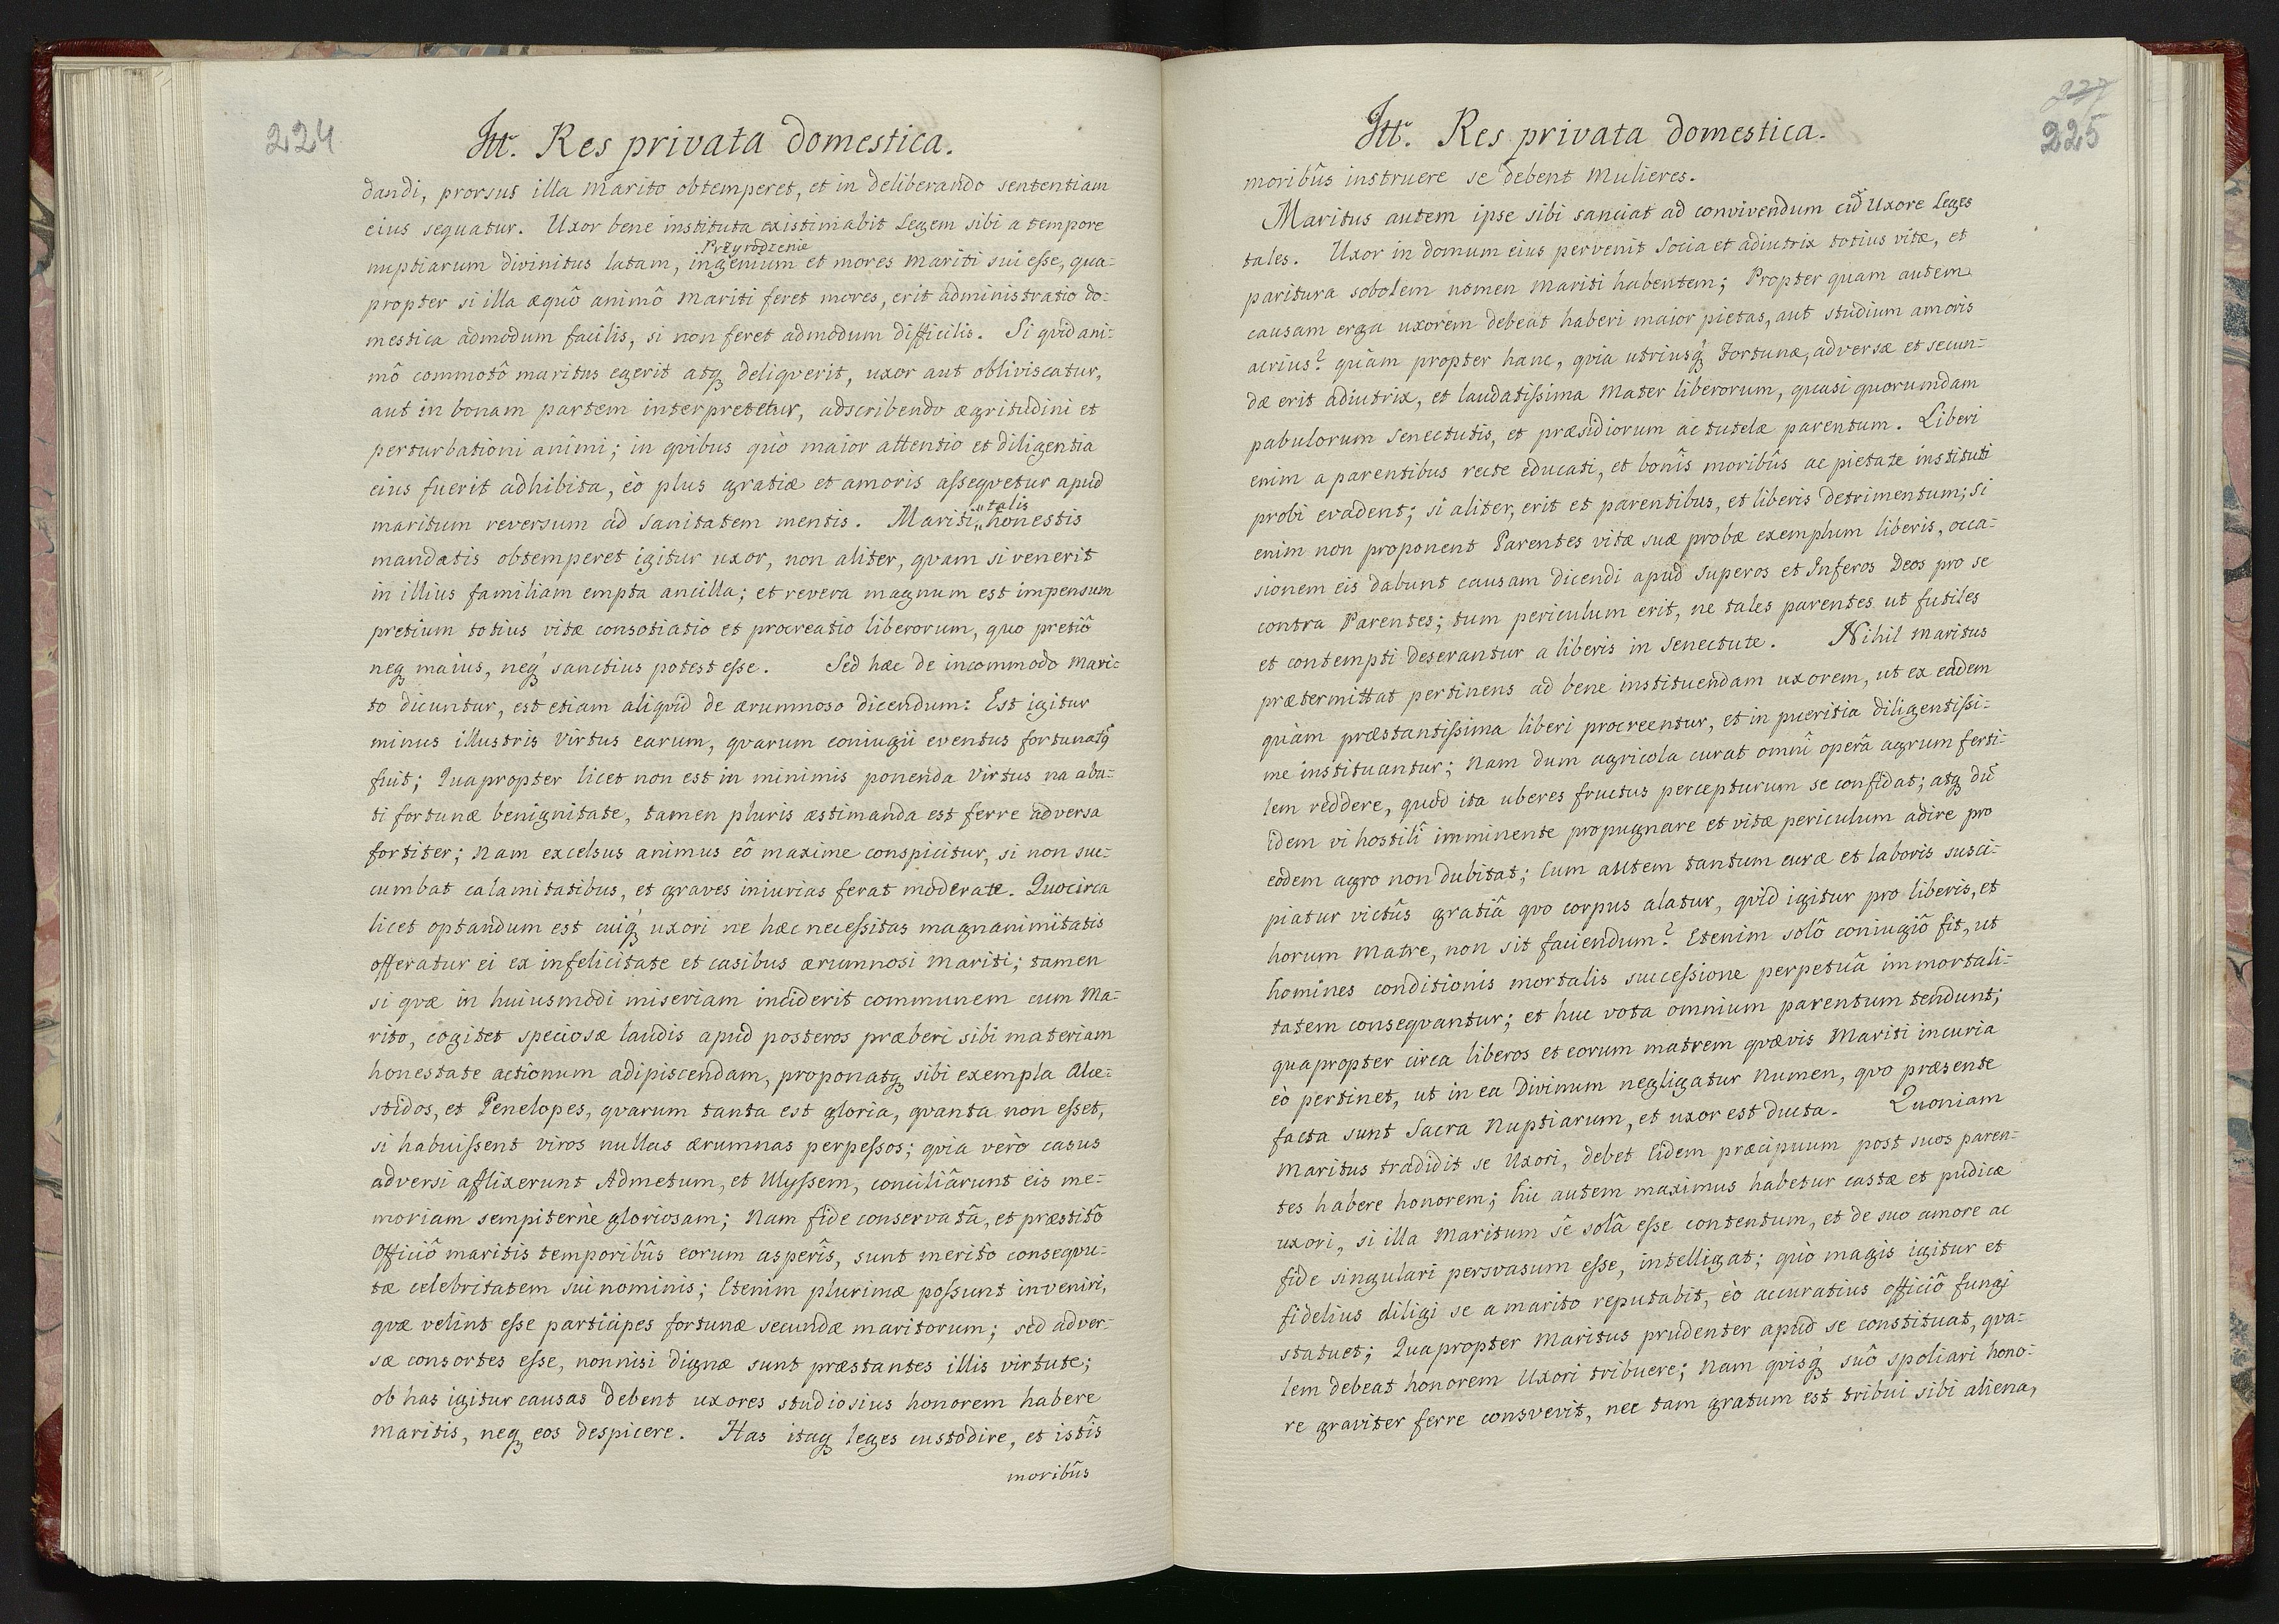 224
Itt. Res privata domestica.
dandi, prorsus illa marito obtemperet, et in deliberando sententiam
eius sequatur. Uxor bene instituta existimabit Legem sibi a tempore
Przyrodzenie
nuptiarum divinitus latam, ingenium et mores mariti sui esse, qua=
propter si illa æquô animô mariti feret mores, erit administratio do=
mestica admodum facilis, si non feret admodum difficilis. Si qvid ani=
mô commotô maritus egerit atq́ deliqverit, uxor aut obliviscatur,
aut in bonam partem interpretetur, adscribendo ægritudini et
perturbationi animi; in qvibus quò maior attentio et diligentia
eius fuerit adhibita, eò plus gratiæ et amoris assequetur apud
talis
maritum reversum ad sanitatem mentis. Mariti „ honestis
mandatis obtemperet igitur uxor, non aliter, qvam si venerit
in illius familiam empta ancilla; et revera magnum est impensum
pretium totius vitæ consotiatio et procreatio liberorum, quo pretiô
neq́ maius, neq́ sanctius potest esse. Sed hæc de incommodo mari=
to dicuntur, est etiam aliqvid de ærumnoso dicendum: Est igitur
minus illustris virtus earum, qvarum coniugii eventus fortunatq
fuit; Quapropter licet non est in minimis ponenda virtus na aba=
ti fortunæ benignitate, tamen pluris æstimanda est ferre adversa
fortiter; Nam excelsus animus eô maxime conspicitur, si non suc=
cumbat calamitatibus, et graves iniurias ferat moderate. Quocirca
licet optandum est cuiq́ uxori ne hæc necessitas magnanimitatis
offeratur ei ex infelicitate et casibus ærumnosi mariti; tamen
si qvæ in huiusmodi miseriam inciderit communem cum Ma=
rito, cogitet speciosæ laudis apud posteros præberi sibi materiam
honestate actionum adipiscendam, proponatq́ sibi exempla Alce=
stidos, et Penelopes, qvarum tanta est gloria, qvanta non esset,
si habuissent viros nullas ærumnas perpessos; qvia verò casus
adversi aflixerunt Admetum, et Ulyssem, conciliârunt eis me=
moriam sempiternè gloriosam; Nam fide conservatâ, et præstitô
Officiô maritis temporibûs eorum asperîs, sunt meritô conseqvu=
tæ celebritatem sui nominis; Etenim plurimæ possunt inveniri,
qvæ velint esse participes fortunæ secundæ maritorum; sed adver=
sæ consortes esse, nonnisi dignæ sunt præstantes illis virtute;
ob has igitur causas debent uxores studiosius honorem habere
maritis, neq́ eos despicere. Has itaq́ leges custodire, et istîs
moribûs
227
225
Itt. Res privata domestica.
moribûs instruere se debent mulieres.
Maritus autem ipse sibi sanciat ad convivendum cũ Uxore Leges
tales. Uxor in domum eius pervenit Socia et adiutrix totius vitæ, et
paritura sobolem nomen mariti habentem; Propter quam autem
causam erga uxorem debeat haberi maior pietas, aut studium amoris
acrius? quàm propter hanc, qvia utriusq́ Fortunæ, adversæ et secun=
dæ erit adiutrix, et laudatissima Mater liberorum, quasi quorumdam
pabulorum senectutis, et præsidiorum ac tutelæ parentum. Liberi
enim a parentibus recte educati, et bonîs moribûs ac pietate instituti
probi evadent; si aliter, erit et parentibus, et liberis detrimentum; Si
enim non proponent Parentes vitæ suæ probæ exemplum liberis, occa=
sionem eis dabunt causam dicendi apud Superos et Inferos Deos pro se
contra Parentes; tum periculum erit, ne tales parentes ut futiles
et contempti deserantur a liberis in Senectute. Nihil maritus
prætermittat pertinens ad bene instituendam uxorem, ut ex eadem
quàm præstantissima liberi procreentur, et in pueritia diligentissi=
me instituantur; Nam dum agricola curat omnî operâ agrum ferti=
lem reddere, quod ita uberes fructus percepturum se confidat; atq́ dũ
idem vi hostilî imminente propugnare et vitæ periculum adire pro
eodem agro non dubitat; Cum autem tantum curæ et laboris susci=
piatur victûs gratiâ qvo corpus alatur, qvid igitur pro liberis, et
horum Matre, non sit faciendum? Etenim solô coniugiô fit, ut
homines conditionis mortalis successione perpetuâ immortali=
tatem conseqvantur; et huc vota omnium parentum tendunt;
quapropter circa liberos et eorum matrem qvævis Mariti incuria
eò pertinet, ut in ea Divinum negligatur Numen, qvo præsente
facta sunt Sacra Nuptiarum, et uxor est ducta. Quoniam
Maritus tradidit se Uxori, debet Eidem præcipuum post suos paren=
tes habere honorem; hic autem maximus habetur castæ et pudicæ
uxori, si illa Maritum sê solâ esse contentum, et de suo amore ac
fide singulari persvasum esse, intelligat; quò magis igitur et
fidelius diligi se a marito reputabit, eò accuratius officiô fungi
statuet; Quapropter Maritus prudenter apud se constituat, qva=
lem debeat honorem Uxori tribuere; Nam qvisq́ suô spoliari hono=
re graviter ferre consvevit, nec tam gratum est tribui sibi aliena,